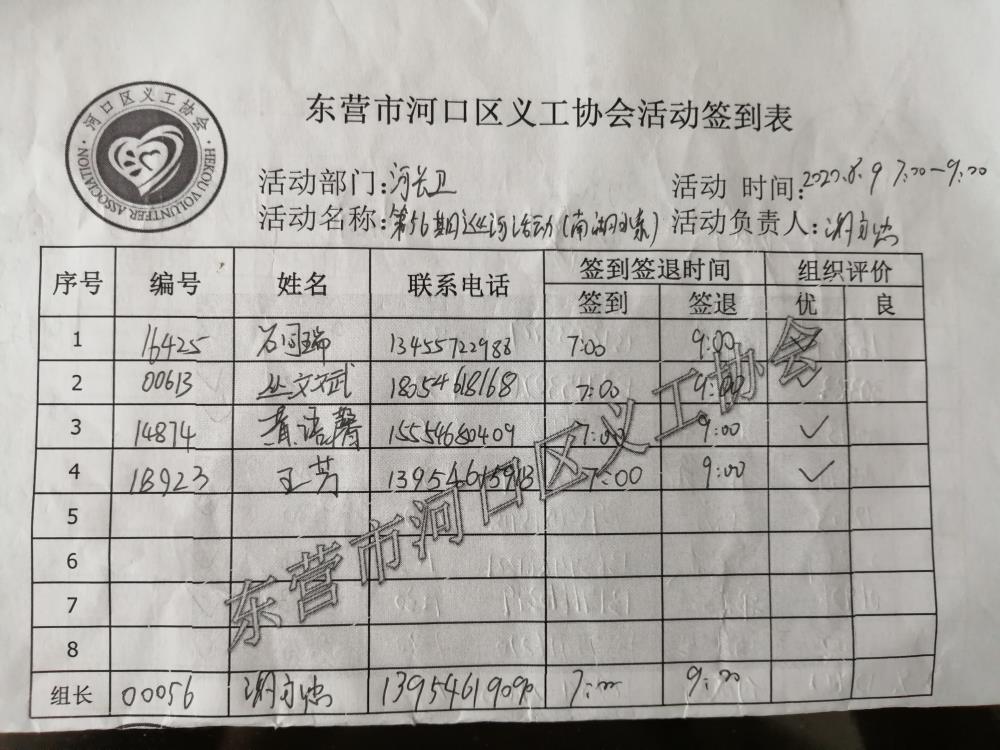 河口区义工协会
HEKOU VOLUNTEER ASSOCIATION
东营市河口区义工协会活动签到表
活动部门:河长卫 活动 时间:2020.8.9 7:00—9:00
活动名称:第56期巡河活动 活动负责人:
序号 编号 姓名 联系电话 签到签退时间 组织评价
签到 签退 优 良
1 16425 13455722988 7:00 9:00
2 00613 丛文武 18054618168 7:00 9:00
3 14874 黄语馨 15554680409 7:00 9:00 ✓
4 王芳 7:00 9:00 ✓
5
6
7
8
组长 00056 13954619090 7:00 9:00
东营市河口区义工协会